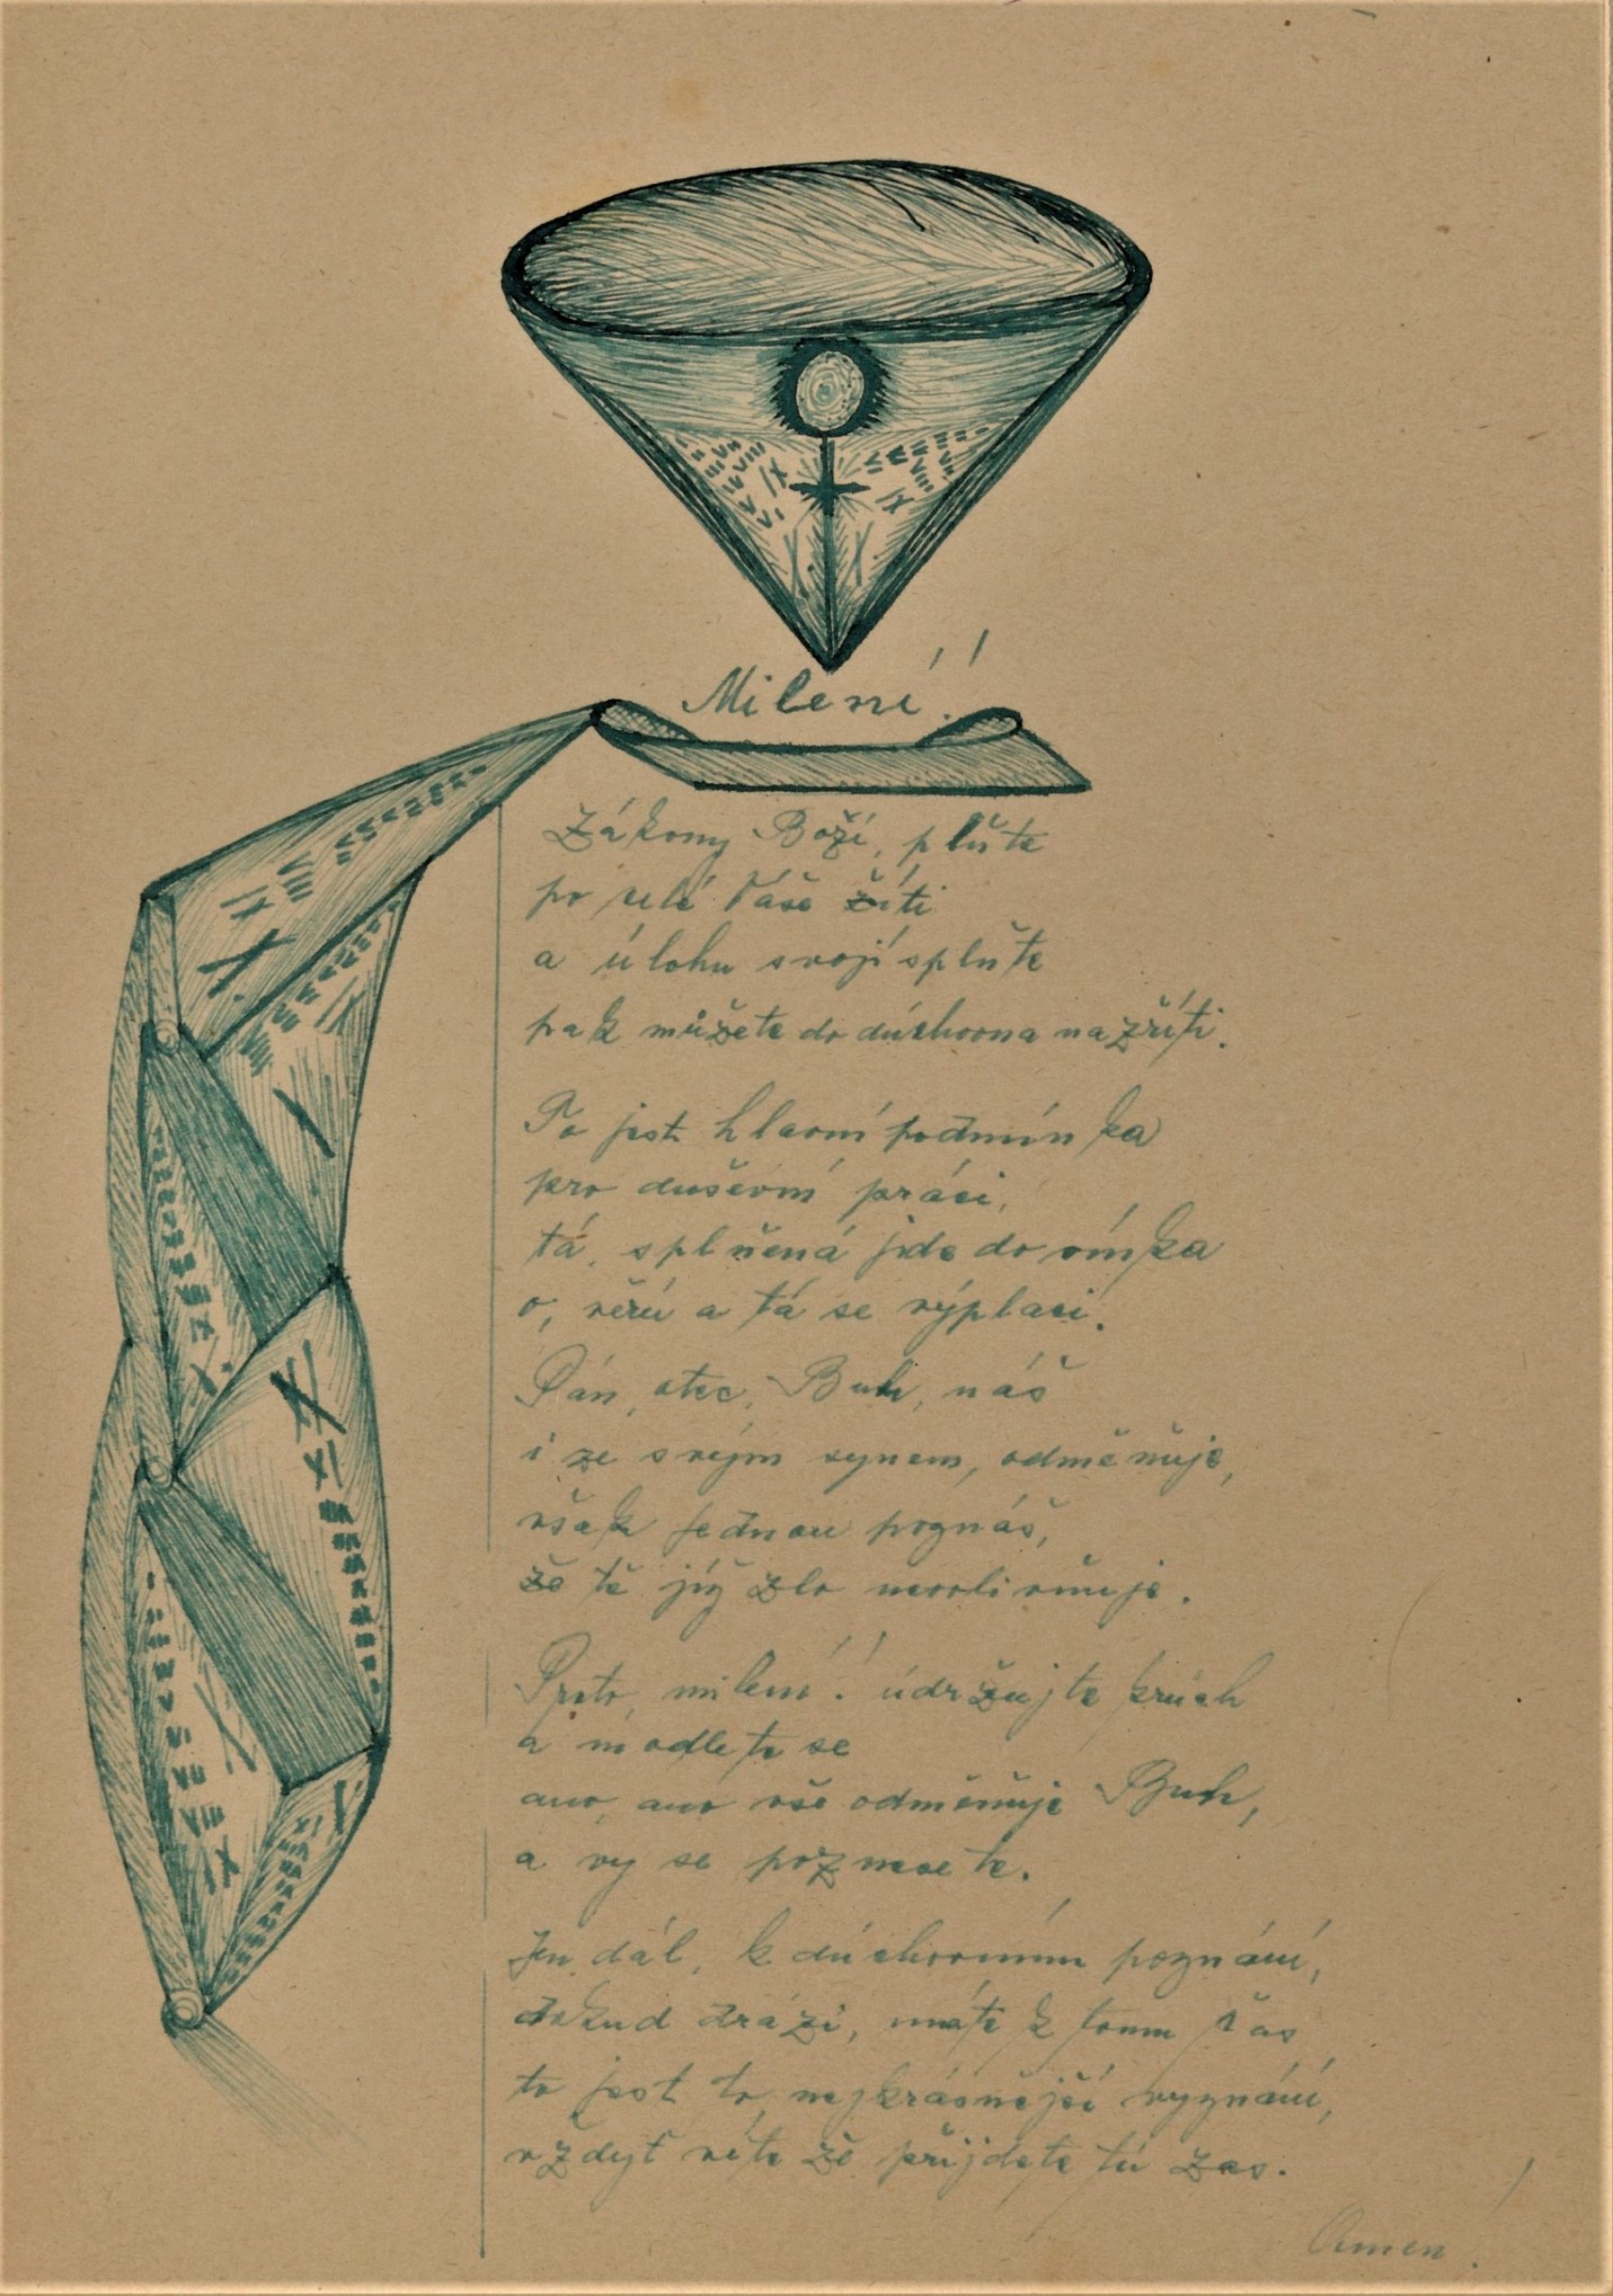 Milení!
Zákony Boží, plňte
po celé Vaše žití
a úlohu svojí splňte
pak můžete do dúchovna nazříti.
To jest hlavní podmínka
pro duševní práci,
tá, splněná jde do vínka
o, věrú a tá se výplací.
Pán, otec, Buh, náš
i ze svejm synem, odměňuje,
však jednou poznáš,
že tě jíž zlo neovlivňuje.
Proto, milení! údržujte krúch
a modlete se
ano, ano vše odměňuje Buh,
a vy se poznesete.
Jen dál, k dúchovnímu poznání,
dokud drází, máte k tomu čas
to jest to, nejkrásnější vyznání,
vždyť víte že přijdete tú zas.
Amen!